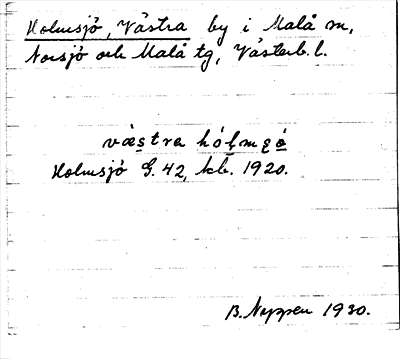 Holmsjö, Västra by i Malå sn,
Norsjö och Malå tg, Västerb. l.
västra
Holmsjö G. 42, kb. 1920.
B. Noppen 1930.